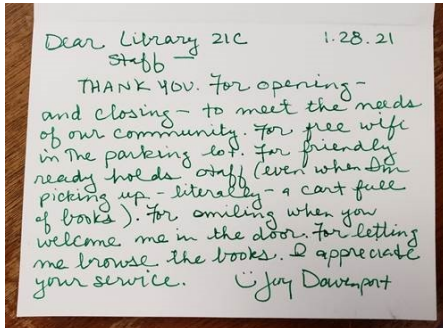 Dear Library 21C 1.28.21
Staff —
THANK YOU. For opening –
and closing – to meet the needs
of our community. For free wifi
in the parking lot. For friendly
ready holds staff (even when I'm
picking up – literally – a cart full
of books). For smiling when you
welcome me in the door. For letting
me browse the books. I appreciate
your service. Joy Davenport